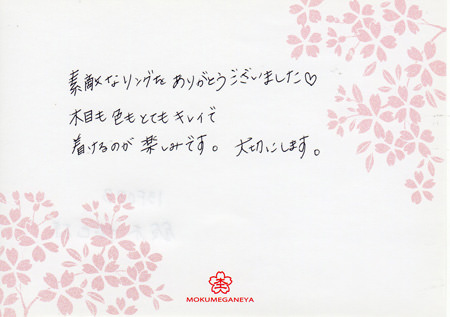 素敵なリングを ありがとうございました♡
木目も 色も とても キレイで
着けるのが 楽しみです。 大切にします。
MOKUMEGANEYA